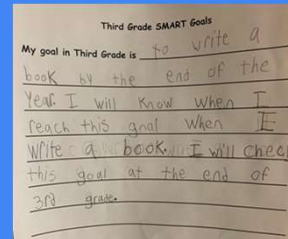 Third Grade SMART Goals
My goal in Third Grade is to write a
book by the end of the
Year. I will know when I
reach this gnal when I
write a book. I will chec
this goal at the end of
3rd grade.